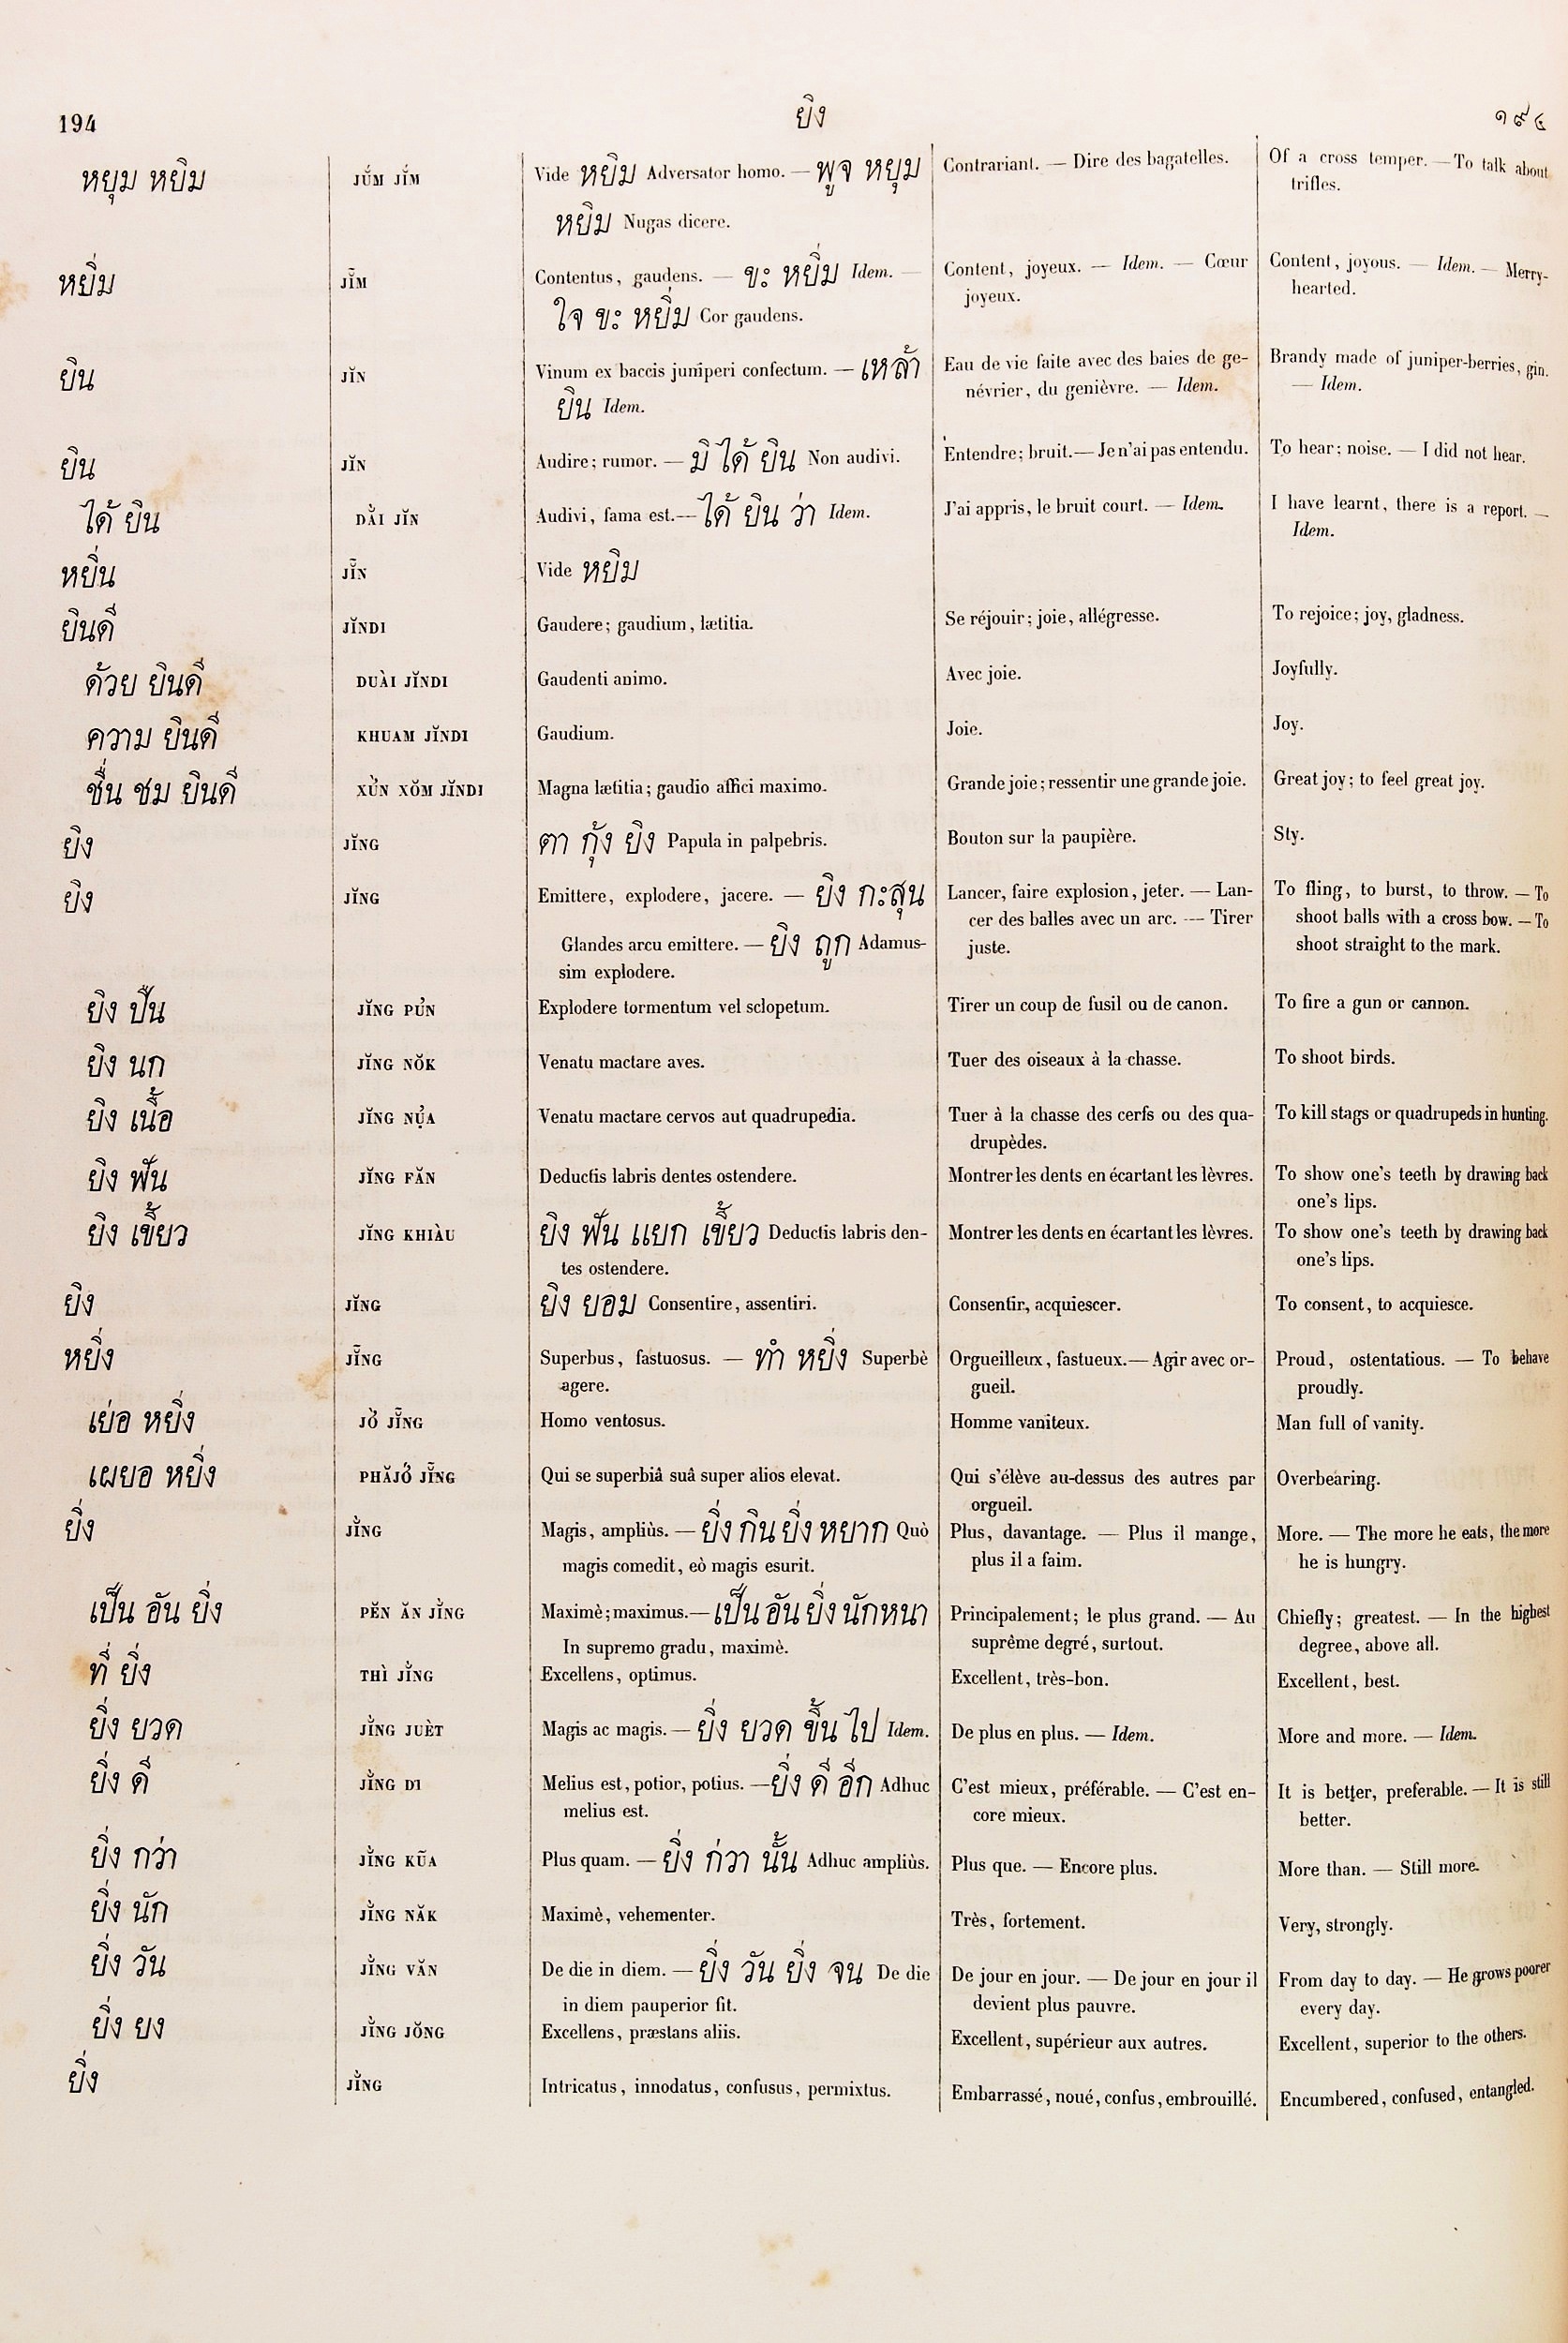 194
ยิง
๑๙๔
หยุม หยิม
JŬ́M JĬ́M
Vide หยิม Adversator homo. — พูจ หยุม
หยิม Nugas dicere.
Contrariant. — Dire des bagatelles.
Of a cross temper. — To talk about
trifles.
หยิ่ม
JĬ̃M
Contentus, gaudens. — ขะ หยิ่ม Idem. —
ใจ ขะ หยิ่ม Cor gaudens.
Content, joyeux. — Idem. — Cœur
joyeux.
Content, joyous. — Idem. — Merry-
hearted.
ยิน
JĬN
Vinum ex baccis juniperi confectum. — เหล้า
ยิน Idem.
Eau de vie faite avec des baies de ge-
névrier, du genièvre. — Idem.
Brandy made of juniper-berries, gin.
— Idem.
ยิน
JĬN
Audire; rumor. — มิ ได้ ยิน Non audivi.
Entendre; bruit. — Je n'ai pas entendu.
To hear; noise. — I did not hear.
ได้ ยิน
DẰI JĬN
Audivi, fama est. — ได้ ยิน ว่า Idem.
J'ai appris, le bruit court. — Idem.
I have learnt, there is a report. —
Idem.
หยิ่น
JĬ̃N
Vide หยิม
ยินดี
JĬNDI
Gaudere; gaudium, lætitia.
Se réjouir; joie, allégresse.
To rejoice; joy, gladness.
ด้วย ยินดี
DUÀI JĬNDI
Gaudenti animo.
Avec joie.
Joyfully.
ความ ยินดี
KHUAM JĬNDI
Gaudium.
Joie.
Joy.
ชื่น ชม ยินดี
XǛN XŎM JĬNDI
Magna lætitia; gaudio affici maximo.
Grande joie; ressentir une grande joie.
Great joy; to feel great joy.
ยิง
JĬNG
ตา กุ้ง ยิง Papula in palpebris.
Bouton sur la paupière.
Sty.
ยิง
JĬNG
Emittere, explodere, jacere. — ยิง กะสุน
Glandes arcu emittere. — ยิง ถูก Adamus-
sim explodere.
Lancer, faire explosion, jeter. — Lan-
cer des balles avec un arc. — Tirer
juste.
To fling, to burst, to throw. — To
shoot balls with a cross bow. — To
shoot straight to the mark.
ยิง ปืน
JĬNG PU̓N
Explodere tormentum vel sclopetum.
Tirer un coup de fusil ou de canon.
To fire a gun or cannon.
ยิง นก
JĬNG NŎK
Venatu mactare aves.
Tuer des oiseaux à la chasse.
To shoot birds.
ยิง เนื้อ
JĬNG NỤ̓A
Venatu mactare cervos aut quadrupedia.
Tuer à la chasse des cerfs ou des qua-
drupèdes.
To kill stags or quadrupeds in hunting.
ยิง ฟัน
JĬNG FĂN
Deductis labris dentes ostendere.
Montrer les dents en écartant les lèvres.
To show one's teeth by drawing back
one's lips.
ยิง เขี้ยว
JĬNG KHIÀU
ยิง ฟัน แยก เขี้ยว Deductis labris den-
tes ostendere.
Montrer les dents en écartant les lèvres.
To show one's teeth by drawing back
one's lips.
ยิง
JĬNG
ยิง ยอม Consentire, assentiri.
Consentir, acquiescer.
To consent, to acquiesce.
หยิ่ง
JĬ̃NG
Superbus, fastuosus. — ทำ หยิ่ง Superbè
agere.
Orgueilleux, fastueux. — Agir avec or-
gueil.
Proud, ostentatious. — To behave
proudly.
เย่อ หยิ่ง
JO̓̀ JĬ̃NG
Homo ventosus.
Homme vaniteux.
Man full of vanity.
เผยอ หยิ่ง
PHĂJO̓́ JĬ̃NG
Qui se superbiâ suâ super alios elevat.
Qui s'élève au-dessus des autres par
orgueil.
Overbearing.
ยิ่ง
JĬ̀NG
Magis, ampliùs. — ยิ่ง กิน ยิ่ง หยาก Quò
magis comedit, eò magis esurit.
Plus, davantage. — Plus il mange,
plus il a faim.
More. — The more he eats, the more
he is hungry.
เป็น อัน ยิ่ง
PĔN ĂN JĬ̀NG
Maximè; maximus. — เป็น อัน ยิ่ง นักหนา
In supremo gradu, maximè.
Principalement; le plus grand. — Au
suprême degré, surtout.
Chiefly; greatest. — In the highest
degree, above all.
ที่ ยิ่ง
THÌ JĬ̀NG
Excellens, optimus.
Excellent, très-bon.
Excellent, best.
ยิ่ง ยวด
JĬ̀NG JUÈT
Magis ac magis. — ยิ่ง ยวด ขึ้น ไป Idem.
De plus en plus. — Idem.
More and more. — Idem.
ยิ่ง ดี
JĬ̀NG DI
Melius est, potior, potius. — ยิ่ง ดี อีก Adhuc
melius est.
C'est mieux, préférable. — C'est en-
core mieux.
It is better, preferable. — It is still
better.
ยิ่ง กว่า
JĬ̀NG KŨA
Plus quam. — ยิ่ง ก่วา นั้น Adhuc ampliùs.
Plus que. — Encore plus.
More than. — Still more.
ยิ่ง นัก
JĬ̀NG NĂK
Maximè, vehementer.
Très, fortement.
Very, strongly.
ยิ่ง วัน
JĬ̀NG VĂN
De die in diem. — ยิ่ง วัน ยิ่ง จน De die
in diem pauperior fit.
De jour en jour. — De jour en jour il
devient plus pauvre.
From day to day. — He grows poorer
every day.
ยิ่ง ยง
JĬ̀NG JŎNG
Excellens, præstans aliis.
Excellent, supérieur aux autres.
Excellent, superior to the others.
ยิ่ง
JĬ̀NG
Intricatus, innodatus, confusus, permixtus.
Embarrassé, noué, confus, embrouillé.
Encumbered, confused, entangled.